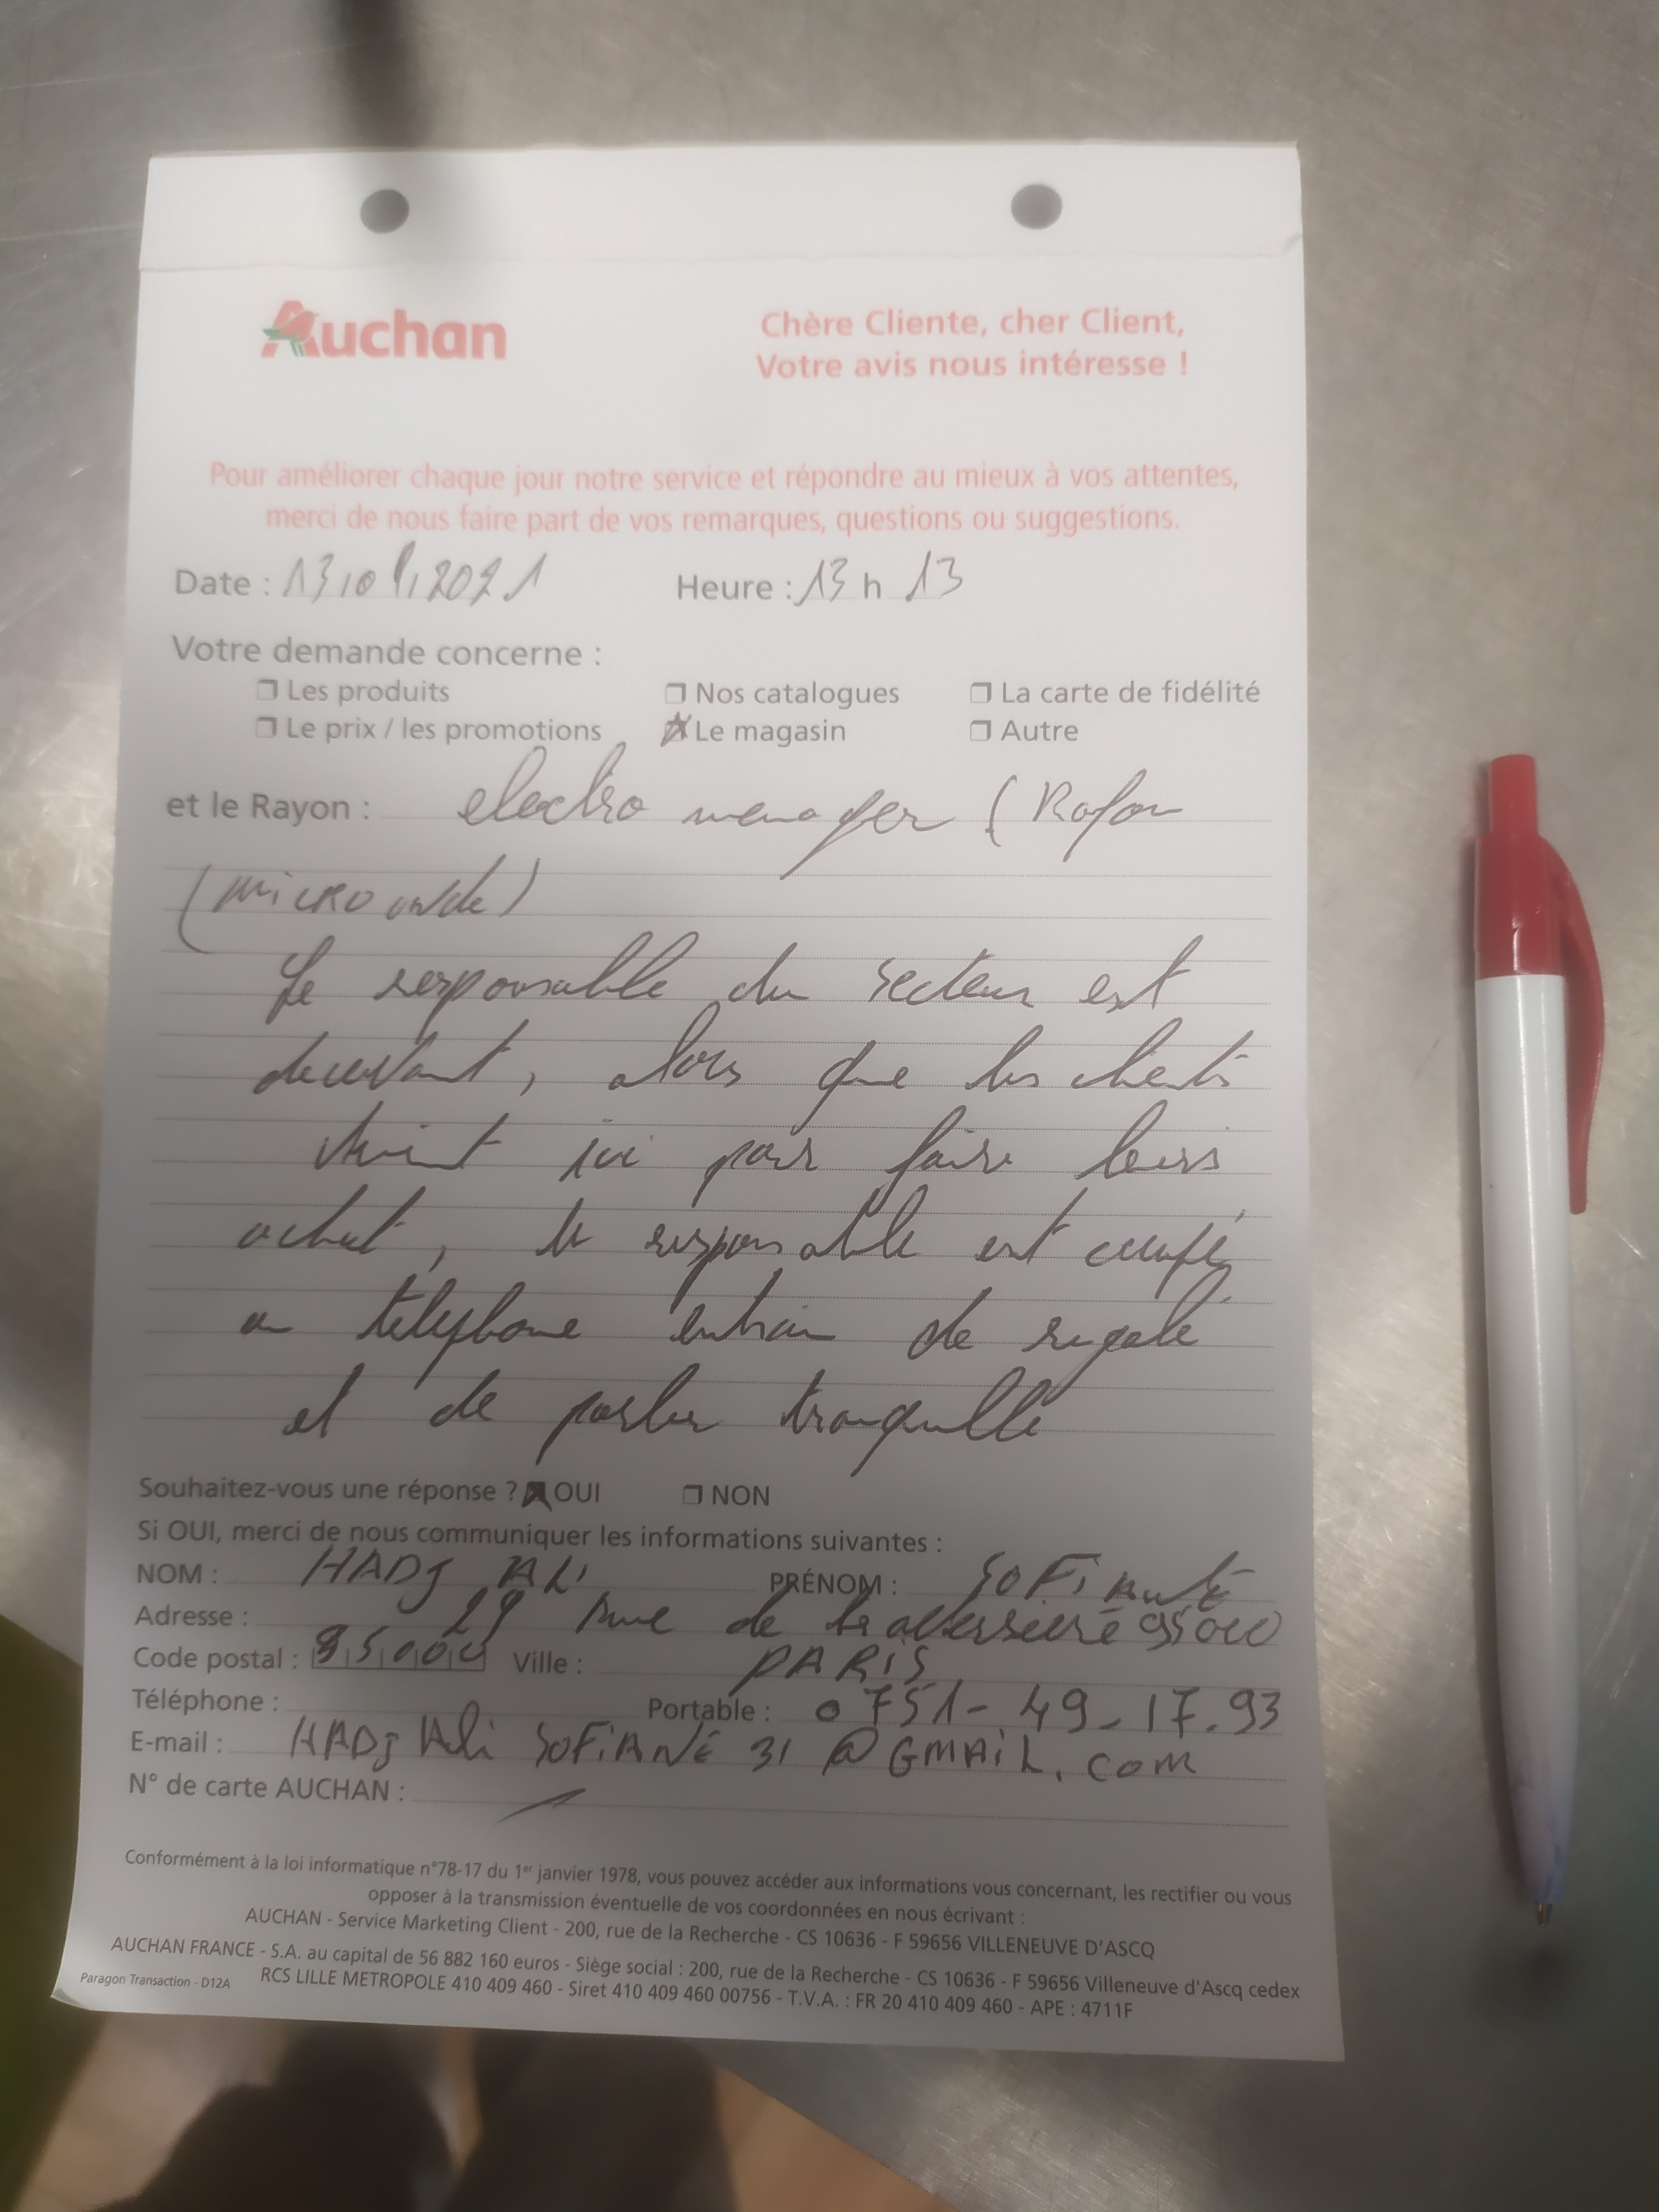 Auchan
Chère Cliente, cher Client,
Votre avis nous intéresse !
Pour améliorer chaque jour notre service et répondre au mieux à vos attentes,
merci de nous faire part de vos remarques, questions ou suggestions.
Date : 13/01/2021 Heure : 13 h 13
Votre demande concerne :
Les produits Nos catalogues La carte de fidélité
Le prix / les promotions Le magasin Autre
et le Rayon : electro menager ( Rayon
(micro onde)
Le responsable du secteur est
decevant, alors que les clients
ici pour faire leurs
achat, le responsable est occupé
au téléphone entrain de
et de parler tranquille
Souhaitez-vous une réponse ? OUI NON
Si OUI, merci de nous communiquer les informations suivantes :
NOM : HADJ ALi PRÉNOM : SOFiANE
Adresse : 29 rue de 95000
Code postal : 95000 Ville : PARIS
Téléphone : Portable : 0751-49-17.93
E-mail : HADJ Ali SOFiANE 31 @ GMAiL.COM
N° de carte AUCHAN :
Conformément à la loi informatique n°78-17 du 1er janvier 1978, vous pouvez accéder aux informations vous concernant, les rectifier ou vous
opposer à la transmission éventuelle de vos coordonnées en nous écrivant :
AUCHAN - Service Marketing Client - 200, rue de la Recherche - CS 10636 - F 59656 VILLENEUVE D'ASCQ
AUCHAN FRANCE - S.A. au capital de 56 882 160 euros - Siège social : 200, rue de la Recherche - CS 10636 - F 59656 Villeneuve d'Ascq cedex
Paragon Transaction - D12A RCS LILLE METROPOLE 410 409 460 - Siret 410 409 460 00756 - T.V.A. : FR 20 410 409 460 - APE : 4711F